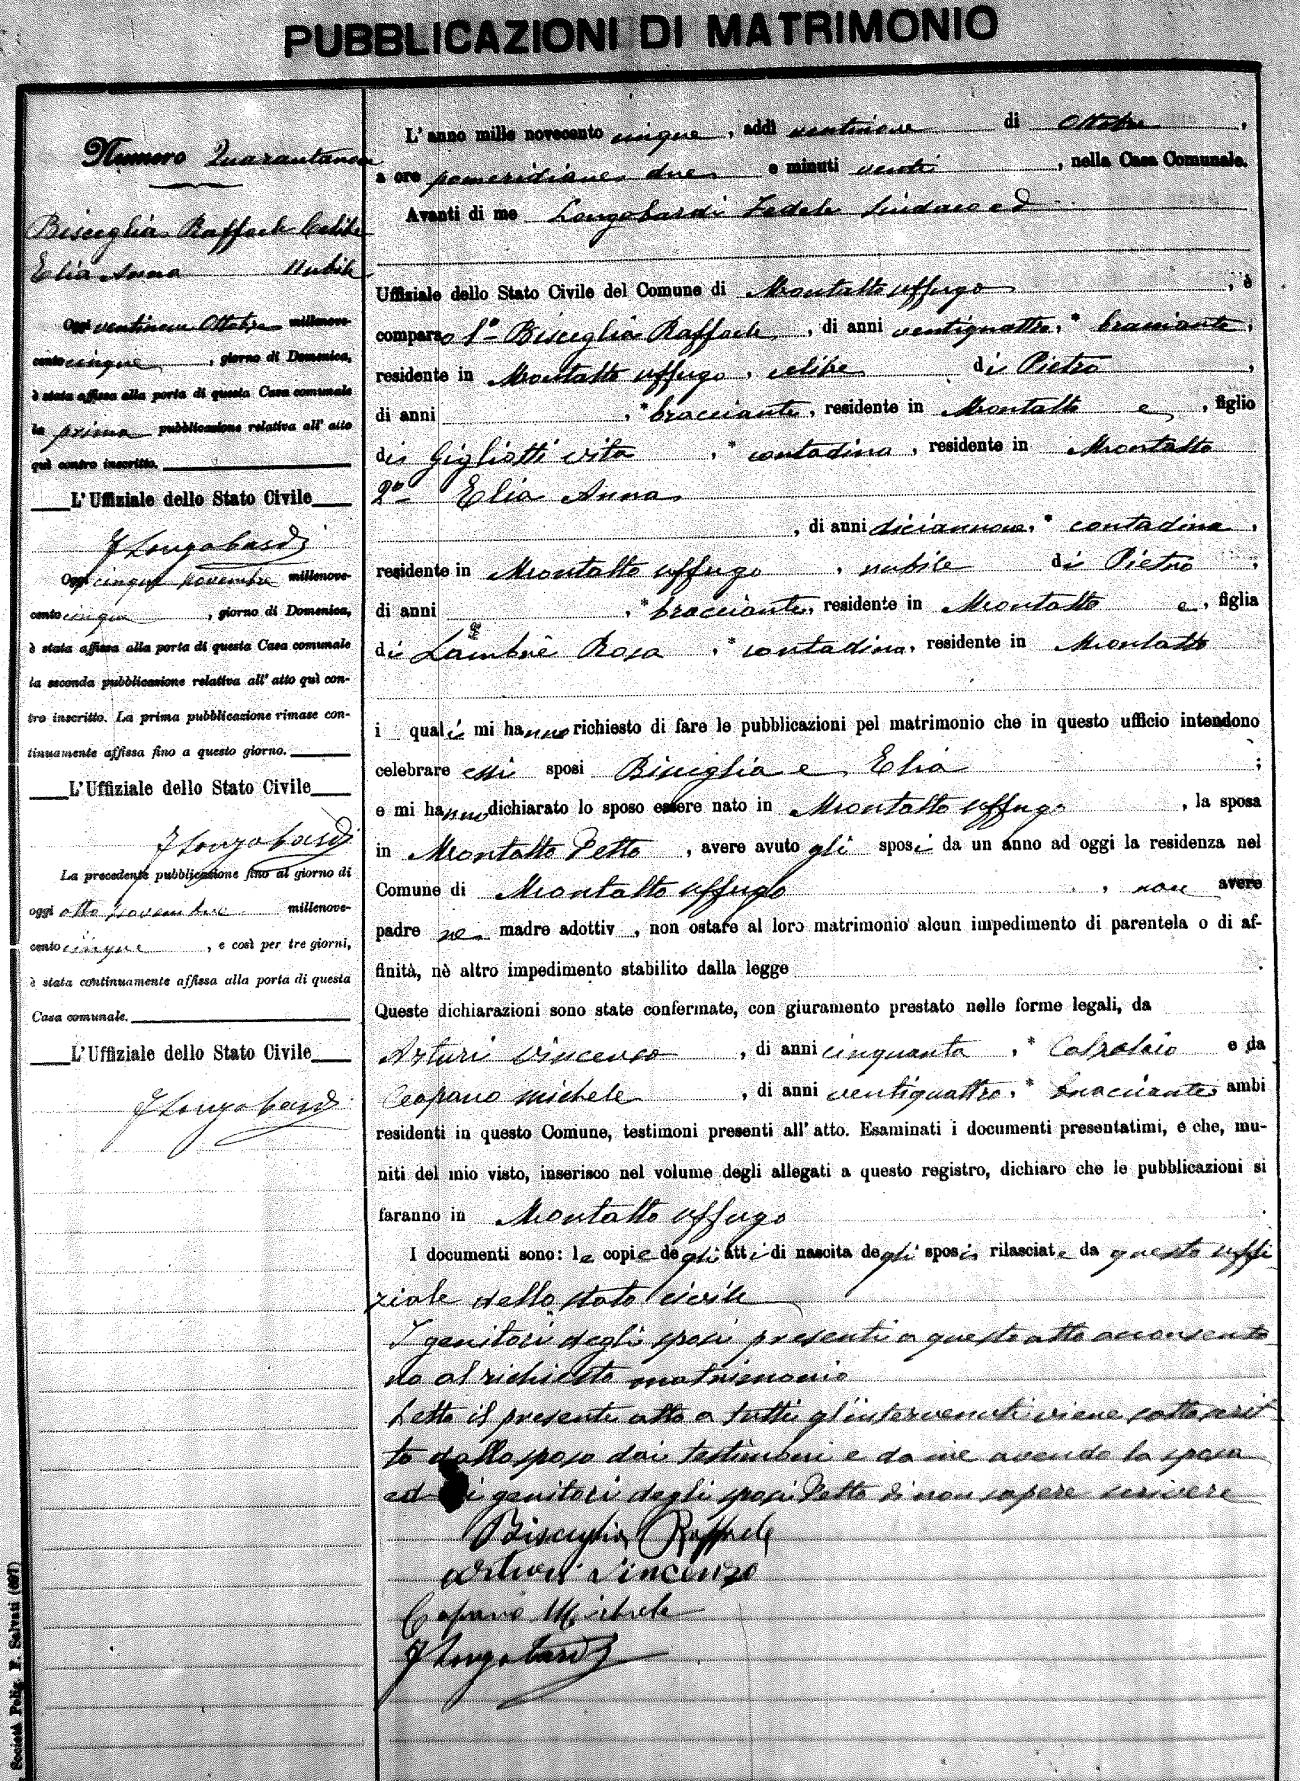 PUBBLICAZIONI DI MATRIMONIO
Numero Quarantanove
Bisceglia Raffaele Celibe
Elia Anna nubile
Oggi ventinove Ottobre millenove-
cento cinque, giorno di Domenica,
è stata affissa alla porta di questa Casa comunale
la prima pubblicazione relativa all' atto
quì contro inscritto.
L'Uffiziale dello Stato Civile
F Longobardi
Oggi cinque novembre millenove-
cento cinque, giorno di Domenica,
è stata affissa alla porta di questa Casa comunale
la seconda pubblicazione relativa all' atto quì con-
tro inscritto. La prima pubblicazione rimase con-
tinuamente affissa fino a questo giorno.
L'Uffiziale dello Stato Civile
F Longobardi
La precedente pubblicazione fino al giorno di
oggi otto novembre millenove-
cento cinque, e così per tre giorni,
è stata continuamente affissa alla porta di questa
Casa comunale.
L'Uffiziale dello Stato Civile
F Longobardi
L' anno mille novecento cinque, addì ventinove di Ottobre,
a ore pomeridiane due e minuti venti, nella Casa Comunale.
Avanti di me Longobardi Fedele Sindaco ed
Uffiziale dello Stato Civile del Comune di Montalto uffugo, è
comparso 1° Bisceglia Raffaele, di anni ventiquattro, * bracciante,
residente in Montalto uffugo, celibe di Pietro,
di anni , * bracciante, residente in Montalto e, figlio
di Gigliotti Vita, * contadina, residente in Montalto
2° Elia Anna
, di anni diciannove, * contadina,
residente in Montalto uffugo, nubile di Pietro,
di anni , * bracciante, residente in Montalto e, figlia
di Lambrè Rosa, * contadina, residente in Montalto
i quali mi hanno richiesto di fare le pubblicazioni pel matrimonio che in questo ufficio intendono
celebrare essi sposi Bisceglia e Elia ;
e mi hanno dichiarato lo sposo essere nato in Montalto uffugo, la sposa
in Montalto Detto, avere avuto gli sposi da un anno ad oggi la residenza nel
Comune di Montalto uffugo, non avere
padre ne madre adottiv , non ostare al loro matrimonio alcun impedimento di parentela o di af-
finità, nè altro impedimento stabilito dalla legge .
Queste dichiarazioni sono state confermate, con giuramento prestato nelle forme legali, da
Arturi Vincenzo, di anni cinquanta, * Calzolaio e da
Ceopano Michele, di anni ventiquattro, * bracciante ambi
residenti in questo Comune, testimoni presenti all' atto. Esaminati i documenti presentatimi, e che, mu-
niti del mio visto, inserisco nel volume degli allegati a questo registro, dichiaro che le pubblicazioni si
faranno in Montalto uffugo .
I documenti sono: le copie degli atti di nascita degli sposi rilasciate da questo uffi
ziale dello stato civile
I genitori degli sposi presenti a questo atto acconsento
no al richiesto matrimonio
Letto il presente atto a tutti gl'intervenuti viene sottoscrit
to dallo sposo dai testimoni e da me avendo la sposa
ed i genitori degli sposi Detto di non sapere scrivere
Bisceglia Raffaele
Arturi Vincenzo
Michele
F Longobardi
Società Polig. F. Salvati (607)